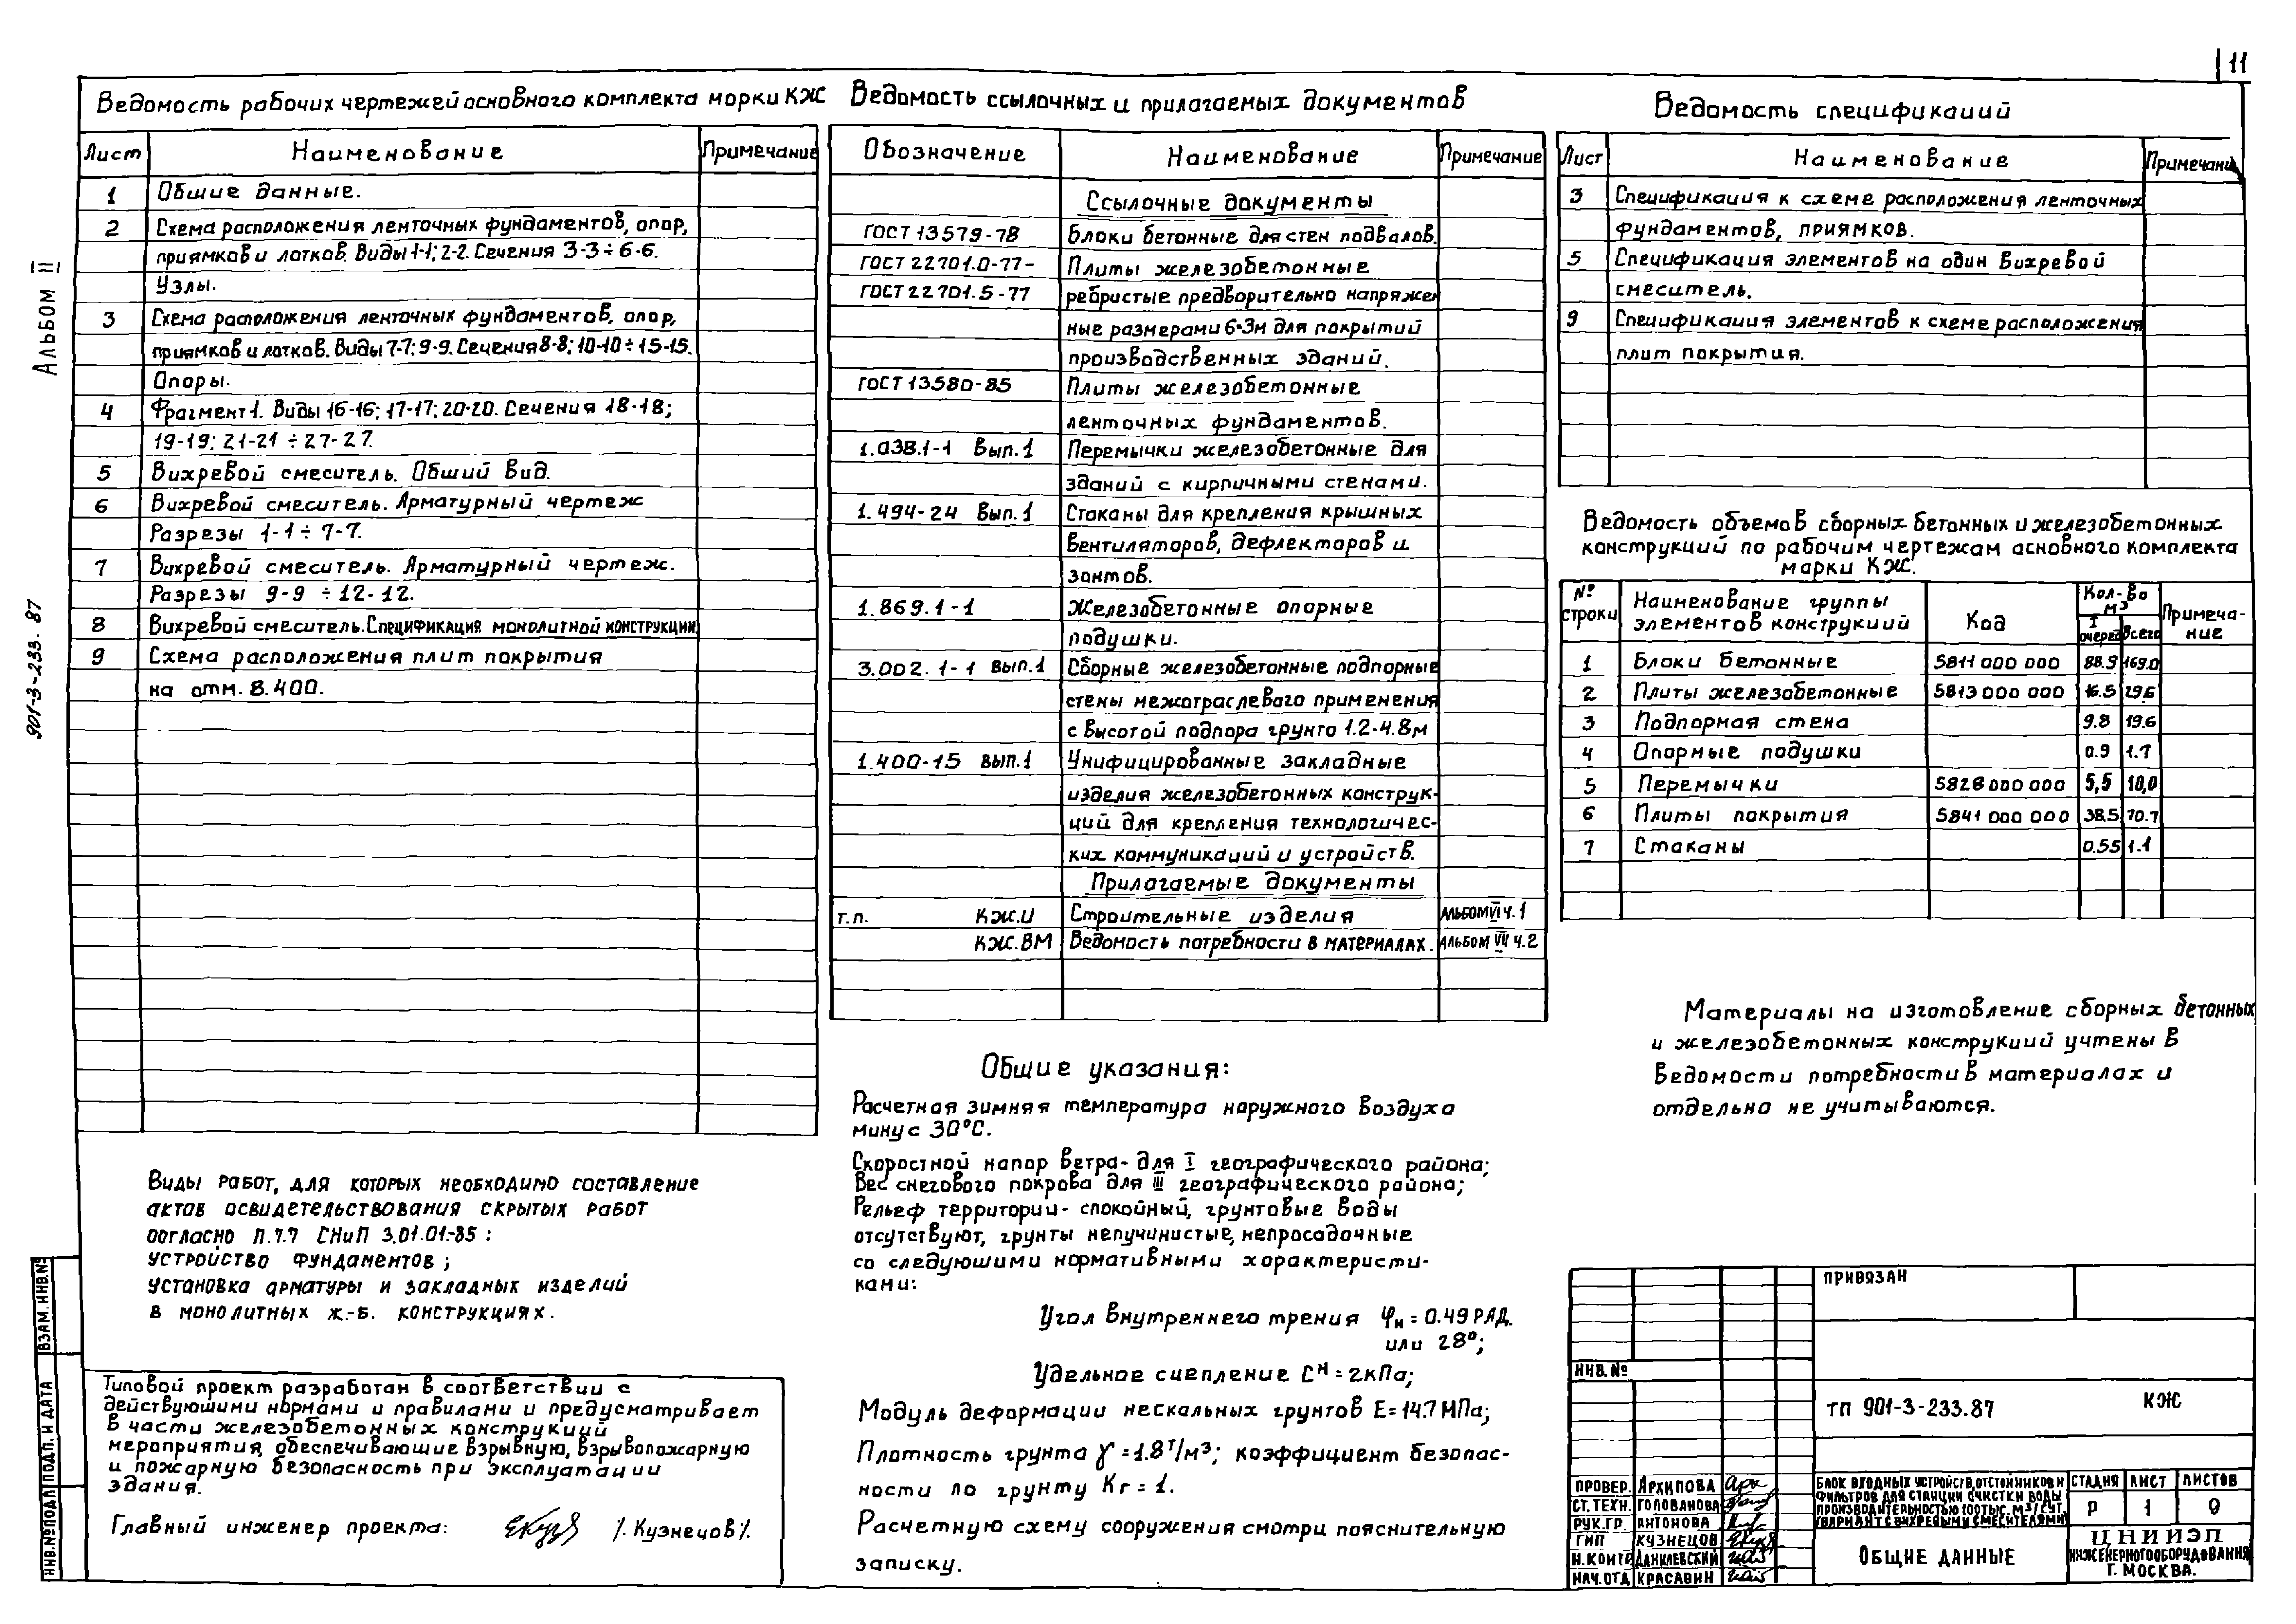 11
Альбом II
901-3-233.87
Ведомость рабочих чертежей основного комплекта марки КЖ
Лист Наименование Примечание
1 Общие данные.
2 Схема расположения ленточных фундаментов, опор,
приямков и лотков. Виды 1-1; 2-2. Сечения 3-3÷6-6.
Узлы.
3 Схема расположения ленточных фундаментов, опор,
приямков и лотков. Виды 7-7; 9-9. Сечения 8-8; 10-10÷15-15.
Опоры.
4 Фрагмент 1. Виды 16-16; 17-17; 20-20. Сечения 18-18;
19-19; 21-21÷27-27.
5 Вихревой смеситель. Общий вид.
6 Вихревой смеситель. Арматурный чертеж
Разрезы 1-1÷7-7.
7 Вихревой смеситель. Арматурный чертеж.
Разрезы 9-9÷12-12.
8 Вихревой смеситель. Спецификация монолитной конструкции
9 Схема расположения плит покрытия
на отм. 8.400.
Виды работ, для которых необходимо составление
актов освидетельствования скрытых работ
согласно п.7.7 СНиП 3.01.01-85:
устройство фундаментов;
установка арматуры и закладных изделий
в монолитных ж.-б. конструкциях.
Типовой проект разработан в соответствии с
действующими нормами и правилами и предусматривает
в части железобетонных конструкций
мероприятия, обеспечивающие взрывную, взрывопожарную
и пожарную безопасность при эксплуатации
здания.
Главный инженер проекта: /. Кузнецов/.
Взам. инв.№
Подп. и дата
Инв.№ подл
Ведомость ссылочных и прилагаемых документов
Обозначение Наименование Примечание
Ссылочные документы
ГОСТ 13579-78 Блоки бетонные для стен подвалов.
ГОСТ 22701.0-77- Плиты железобетонные
ГОСТ 22701.5-77 ребристые предварительно напряжен
ные размерами 6×3м для покрытий
производственных зданий.
ГОСТ 13580-85 Плиты железобетонные
ленточных фундаментов.
1.038.1-1 Вып.1 Перемычки железобетонные для
зданий с кирпичными стенами.
1.494-24 Вып.1 Стаканы для крепления крышных
вентиляторов, дефлекторов и
зонтов.
1.869.1-1 Железобетонные опорные
подушки.
3.002.1-1 вып.1 Сборные железобетонные подпорные
стены межотраслевого применения
с высотой подпора грунта 1.2-4.8м
1.400-15 вып.1 Унифицированные закладные
изделия железобетонных конструк-
ций для крепления технологичес-
ких коммуникаций и устройств.
Прилагаемые документы
т.п. КЖ.И Строительные изделия Альбом VI ч.1
КЖ.ВМ Ведомость потребности в материалах. Альбом ч.2
Общие указания:
Расчетная зимняя температура наружного воздуха
минус 30°С.
Скоростной напор ветра- для I географического района;
Вес снегового покрова для III географического района;
Рельеф территории- спокойный, грунтовые воды
отсутствуют, грунты непучинистые, непросадочные
со следующими нормативными характеристи-
ками:
Угол внутреннего трения φн = 0.49 рад.
или 28°;
Удельное сцепление Сн = 2кПа;
Модуль деформации нескальных грунтов Е=14.7 МПа;
Плотность грунта γ = 1.8 т/м³; коэффициент безопас-
ности по грунту Кг = 1.
Расчетную схему сооружения смотри пояснительную
записку.
Ведомость спецификаций
Лист Наименование Примечани
3 Спецификация к схеме расположения ленточных
фундаментов, приямков.
5 Спецификация элементов на один вихревой
смеситель.
9 Спецификация элементов к схеме расположения
плит покрытия.
Ведомость объемов сборных бетонных и железобетонных
конструкций по рабочим чертежам основного комплекта
марки КЖ.
№ строки Наименование группы элементов конструкций Код Кол-во м³ I очередь Всего Примеча-ние
1 Блоки бетонные 5811 000 000 88.9 169.0
2 Плиты железобетонные 5813 000 000 16.5 29.6
3 Подпорная стена 9.8 19.6
4 Опорные подушки 0.9 1.7
5 Перемычки 5828 000 000 5,5 10,0
6 Плиты покрытия 5841 000 000 38.5 70.7
7 Стаканы 0.55 1.1
Материалы на изготовление сборных бетонных
и железобетонных конструкций учтены в
Ведомости потребности в материалах и
отдельно не учитываются.
Привязан
Инв.№
ТП 901-3-233.87 КЖ
Провер. Архипова
Ст.техн. Голованова
Рук.гр. Антонова
ГИП Кузнецов
Н.контр Данилевский
Нач.отд Красавин
Блок входных устройств, отстойников и
фильтров для станции очистки воды
производительностью 100тыс. м³/сут.
(вариант с вихревыми смесителями)
Стадия Лист Листов
Р 1 9
Общие данные
ЦНИИЭП
инженерного оборудования
г. Москва.